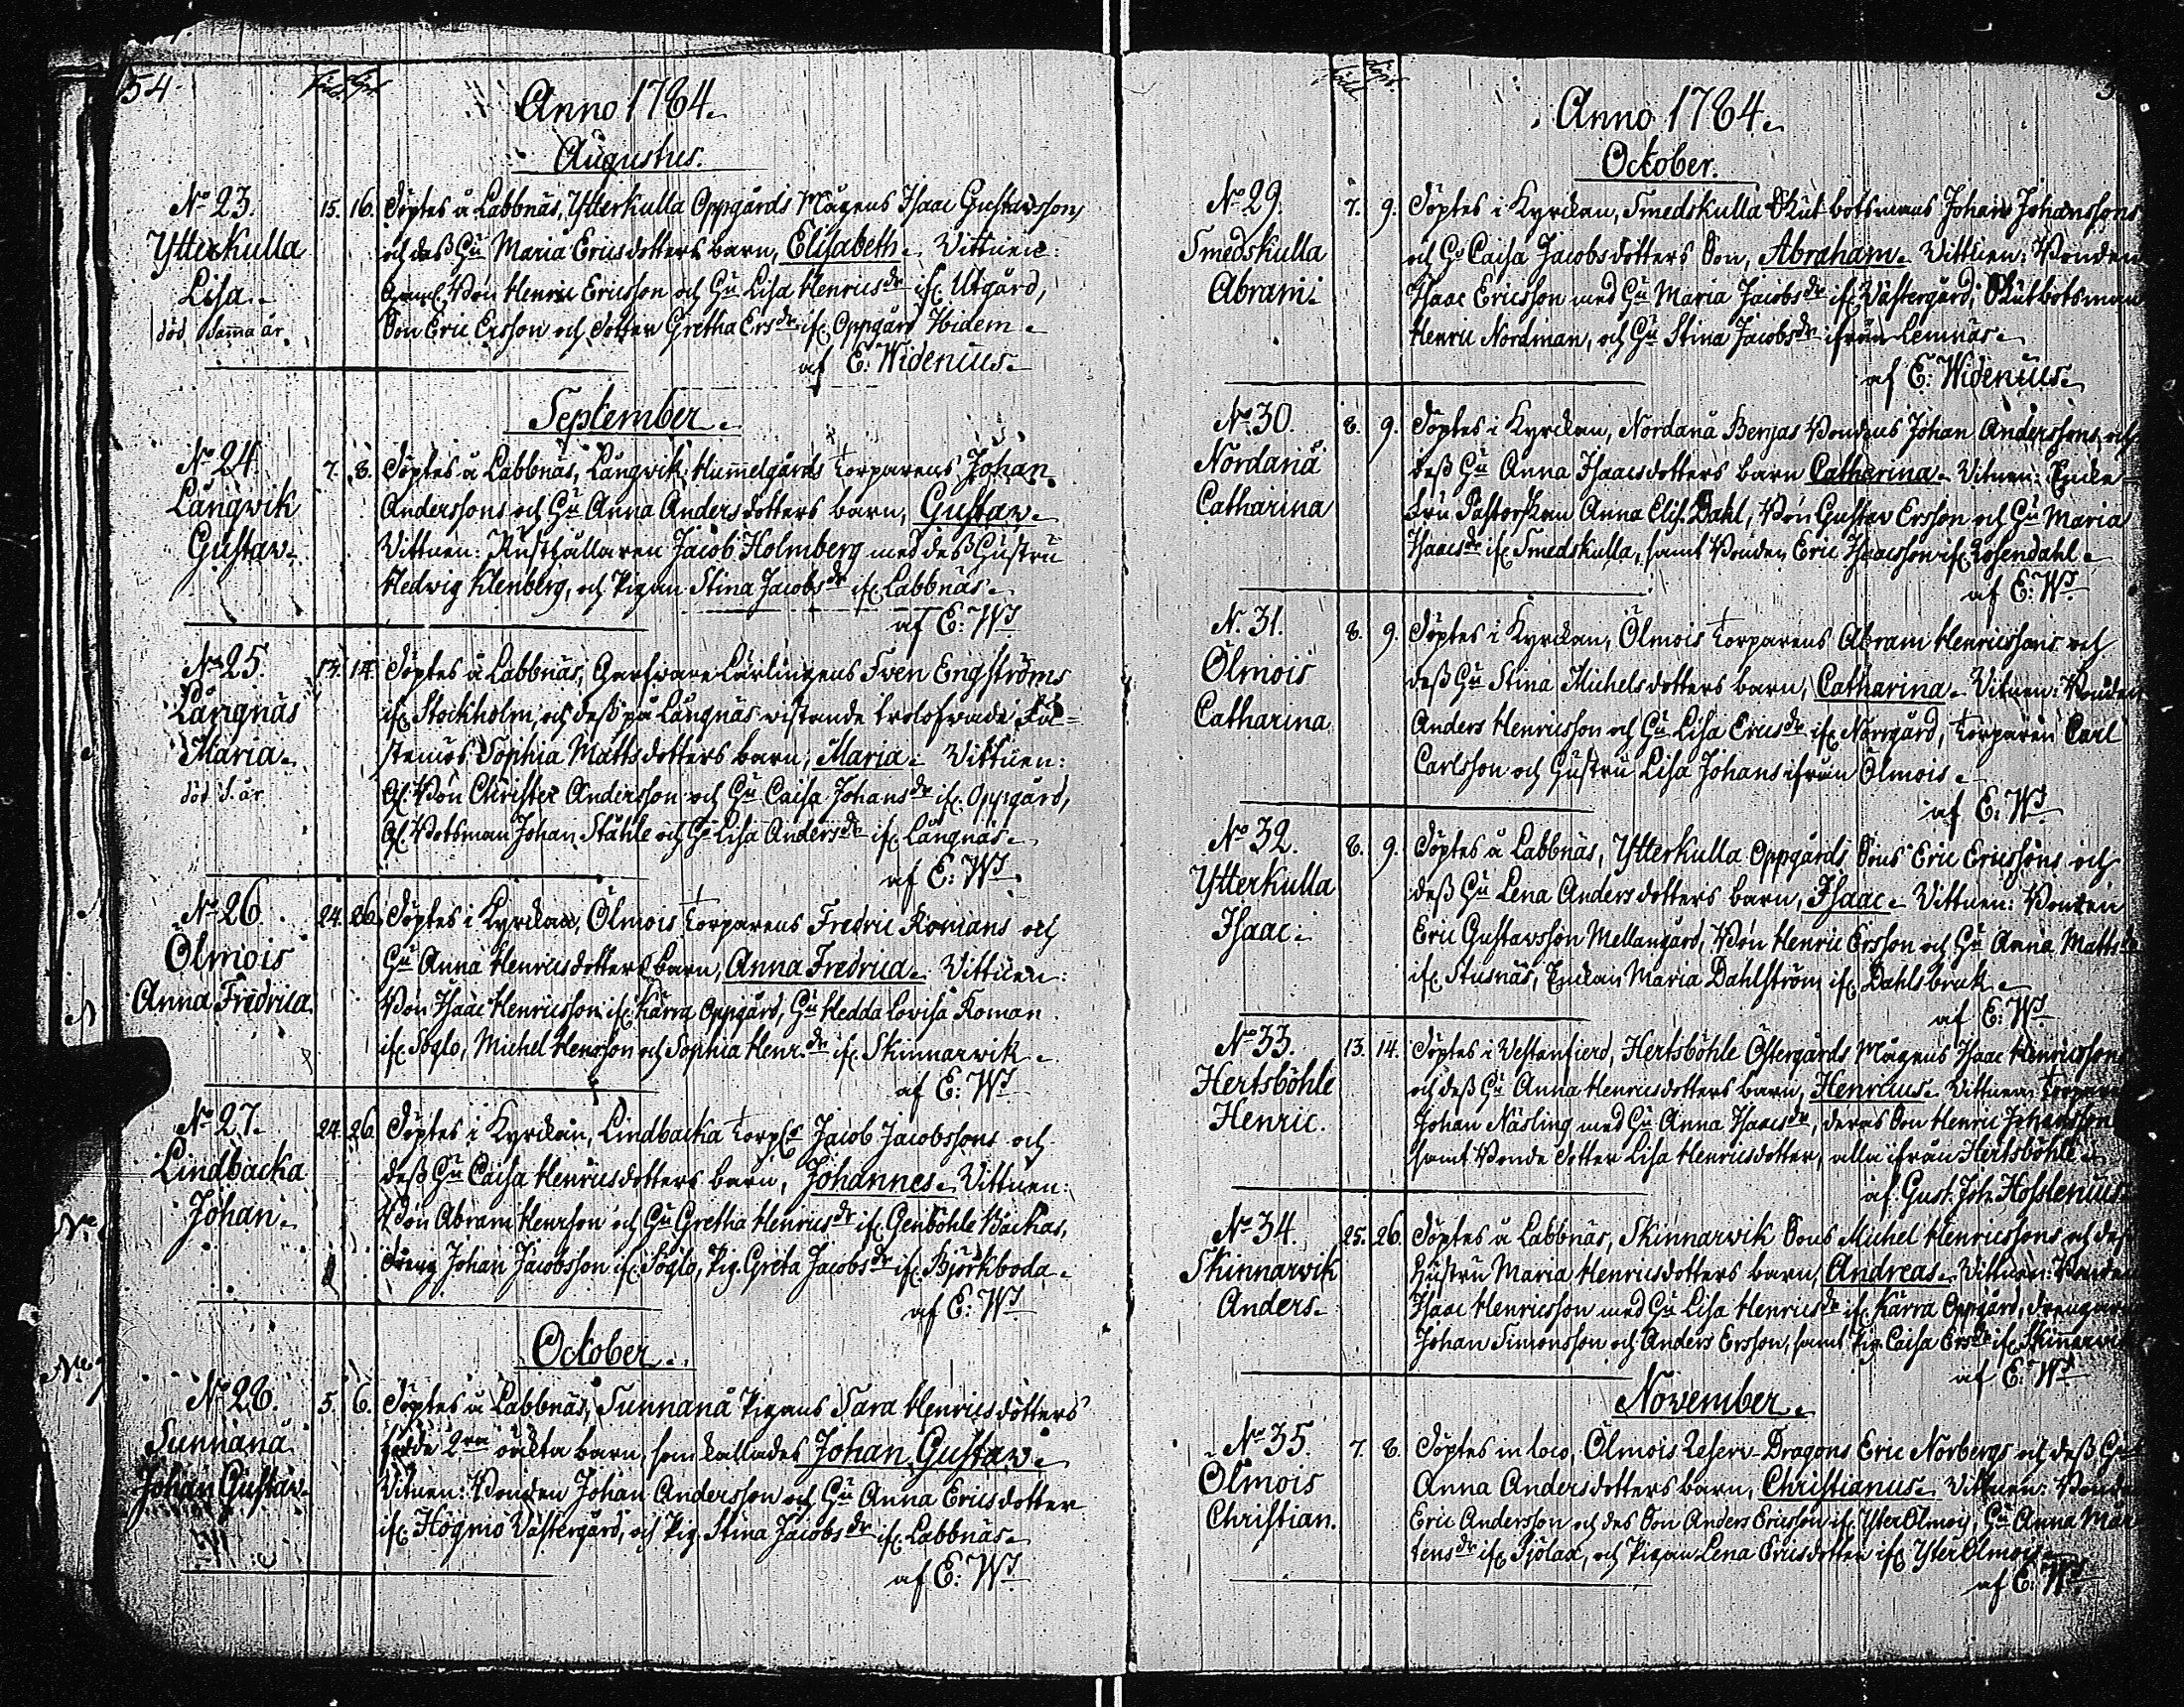 54.
Född. Döpt.
Anno 1784.
Augustus.
No 23.
Ytterkulla
Lisa.
död samma år.
15. 16.
Döptes å Labbnäs, Ytterkulla Oppgårds Mågens Isaac Gustavssons
och dess Hu Maria Ericsdotters barn, Elisabeth. Vittnen:
Bon Henric Ericsson och Hu Lisa Henricsdr ifr. Utgård,
Son Eric Ersson och dotter Gretha Ersdr ifr. Oppgård Ibidem.
af E: Widenius.
September.
No 24.
Långwik
Gustav.
7. 8.
Döptes å Labbnäs, Långwik Hummelgårds Torparens Johan
Anderssons och Hu Anna Andersdotters barn, Gustav.
Vittnen: Rusthållaren Jacob Holmberg med dess Hustru
Hedwig Klenberg, och Pigan Stina Jacobsdr ifr. Labbnäs.
af E: Ws
No 25.
Långnäs
Maria.
död s. år
13. 14.
Döptes å Labbnäs, Garfware Lärlingens Sven Engströms
ifr. Stockholm, och dess på Långnäs vistande trolofwade Fä=
stemös Sophia Mattsdotters barn, Maria. Vittnen:
Gl. Bon Christer Andersson och Hu Caisa Johansdr ifr. Oppgård,
Gl. Botsman Johan Ståhle och Hu Lisa Andersdr ifr. Långnäs.
af E: Ws
No 26.
Ölmois
Anna Fredrica
24. 26.
Döptes i Kyrckan, Ölmois Torparens Fredric Romans och
Hu Anna Henricsdotters barn, Anna Fredrica. Vittnen:
Bon Isaac Henricsson ifr. Kärra Oppgård, Hu Hedda Lovisa Roman
ifr. Söglo, Michel Hensson och Sophia Henr.dr ifr. Skinnarwik.
af E: Ws
No 27.
Lindbacka
Johan.
24. 26.
Döptes i Kyrckan, Lindbacka Torp.s Jacob Jacobssons och
dess Hu Caisa Henricsdotters barn, Johannes. Vittnen:
Bon Abram Henrsson och Hu Gretha Henricsdr ifr. Genböhle Backas,
dreng Johan Jacobsson ifr. Söglo, Pig. Greta Jacobsdr ifr. Björkboda.
af E: Ws
October.
No 28.
Sunnanå
Johan Gustav.
5. 6.
Döptes å Labbnäs, Sunnanå Pigans Sara Henricsdotters
födde 2ra oäkta barn, som kallades Johan Gustav.
Vitnen: Bonden Johan Andersson och Hu Anna Ericsdotter
ifr. Högmo Västergård, och Pig. Stina Jacobsdr ifr. Labbnäs.
af E: Ws
Född. Döpt.
Anno 1784.
October.
No 29.
Smedskulla
Abram.
7. 9.
Döptes i Kyrckan, Smedskulla Skutbotsmans Johan Johanssons
och Hu Caisa Jacobsdotters Son, Abraham. Vittnen: Bonden
Isaac Ericsson med Hu Maria Jacobsdr ifr. Västergård, Skutbotsman
Henric Nordman, och Hu Stina Jacobsdr ifrån Lemnäs.
af E: Widenius.
No 30.
Nordanå
Catharina
8. 9.
Döptes i Kyrckan, Nordanå Benjas Bondens Johan Anderssons och
dess Hu Anna Isaacsdotters barn Catharina. Vitnen: Encke=
fru Pastorskan Anna Elis. Dahl, Bon Gustav Ersson och Hu Maria
Isaacsdr ifr. Smedskulla, samt Bonden Eric Isaacsson ifr. Rosendahl.
af E: Ws
N. 31.
Ölmois
Catharina
8. 9.
Döptes i Kyrckan, Ölmois Torparens Abram Henricssons och
dess Hu Stina Michelsdotters barn, Catharina. Vitnen: Bonden
Anders Henricsson och Hu Lisa Ericsdr ifr. Norrgård, Torparen Carl
Carlsson och Hustru Lisa Johans ifrån Ölmois.
af E: Ws
No 32.
Ytterkulla
Isaac.
8. 9.
Döptes å Labbnäs, Ytterkulla Oppgårds Sons Eric Ericssons och
dess Hu Lena Andersdotters barn, Isaac. Vittnen: Bonden
Eric Gustavsson Mellangård, Bon Henric Ersson och Hu Anna Mattsdr
ifr. Stusnäs, Enckan Maria Dahlström ifr. Dahlsbruk.
af E: Ws
No 33.
Hertsböhle
Henric.
13. 14.
Döptes i Vestanfierd, Hertsböhle Östergårds Mågens Isaac Henricssons
och dess Hu Anna Henricsdotters barn, Henricus. Vittnen: Torpare
Johan Näsling med Hu Anna Isaacsdr, deras Son Henric Johansson
samt Bonde dotter Lisa Henricsdotter, alla ifrån Hertsböhle.
af Gust. Joh. Hosslenius.
No 34.
Skinnarwik
Anders.
25. 26.
Döptes å Labbnäs, Skinnarwik Sons Michel Henricssons och dess
Hustru Maria Henricsdotters barn, Andreas. Vittnen: Bonden
Isaac Henricsson med Hu Lisa Henricsdr ifr. Kärra Oppgård, drengarne
Johan Simonsson och Anders Ersson, samt Pig. Caisa Ersdr ifr. Skinnarwik
af E: Ws
November.
No 35.
Ölmois
Christian.
7. 8.
Döptes in loco, Ölmois Reserv-Dragons Eric Norbergs och dess Hu
Anna Andersdotters barn, Christianus. Vittnen: Bonden
Eric Andersson och des Son Anders Ericsson ifr. YtterÖlmois, Hu Anna Mår=
tensdr ifr. Pjölax, och Pigan Lena Ericsdotter ifr. YtterÖlmois.
af E: Ws